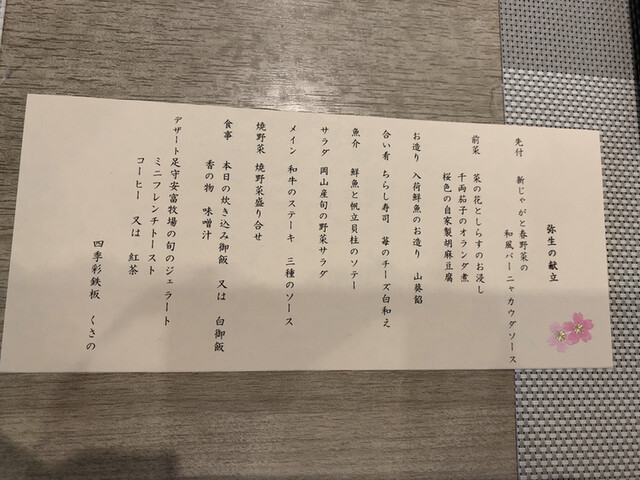 弥生の献立
先付　新じゃがと春野菜の
和風バーニャカウダソース
前菜　菜の花としらすのお浸し
千両茄子のオランダ煮
桜色の自家製胡麻豆腐
お造り　入荷鮮魚のお造り　山葵餡
合い肴　ちらし寿司　苺のチーズ白和え
魚介　鮮魚と帆立貝柱のソテー
サラダ　岡山産旬の野菜サラダ
メイン　和牛のステーキ　三種のソース
焼野菜　焼野菜盛り合せ
食事　本日の炊き込み御飯　又は　白御飯
香の物　味噌汁
デザート　足守安富牧場の旬のジェラート
ミニフレンチトースト
コーヒー　又は　紅茶
四季彩鉄板　くさの